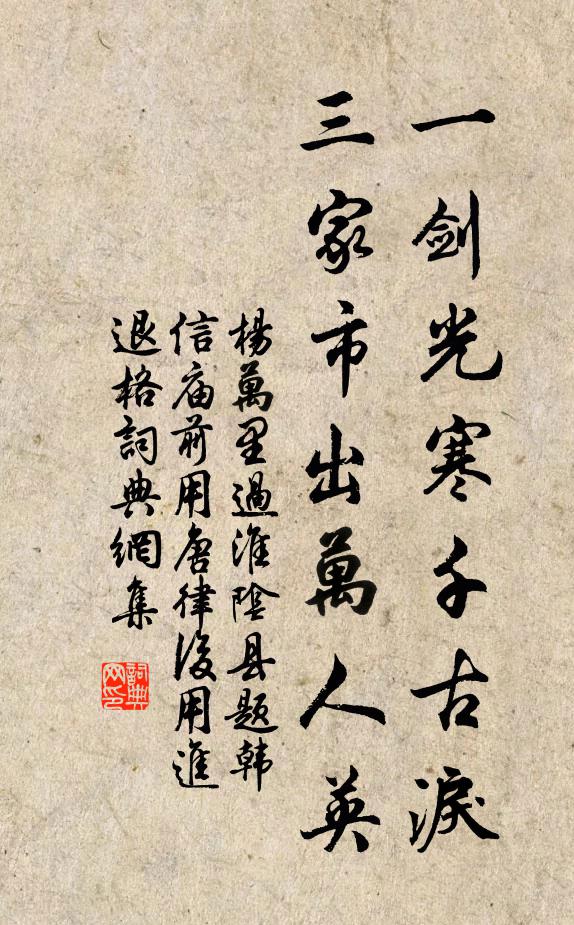 一劍光寒千古淚
三家市出萬人英
楊萬里過淮陰县题韩
信庙前用唐律後用進
退格詞典網集
詞典网印